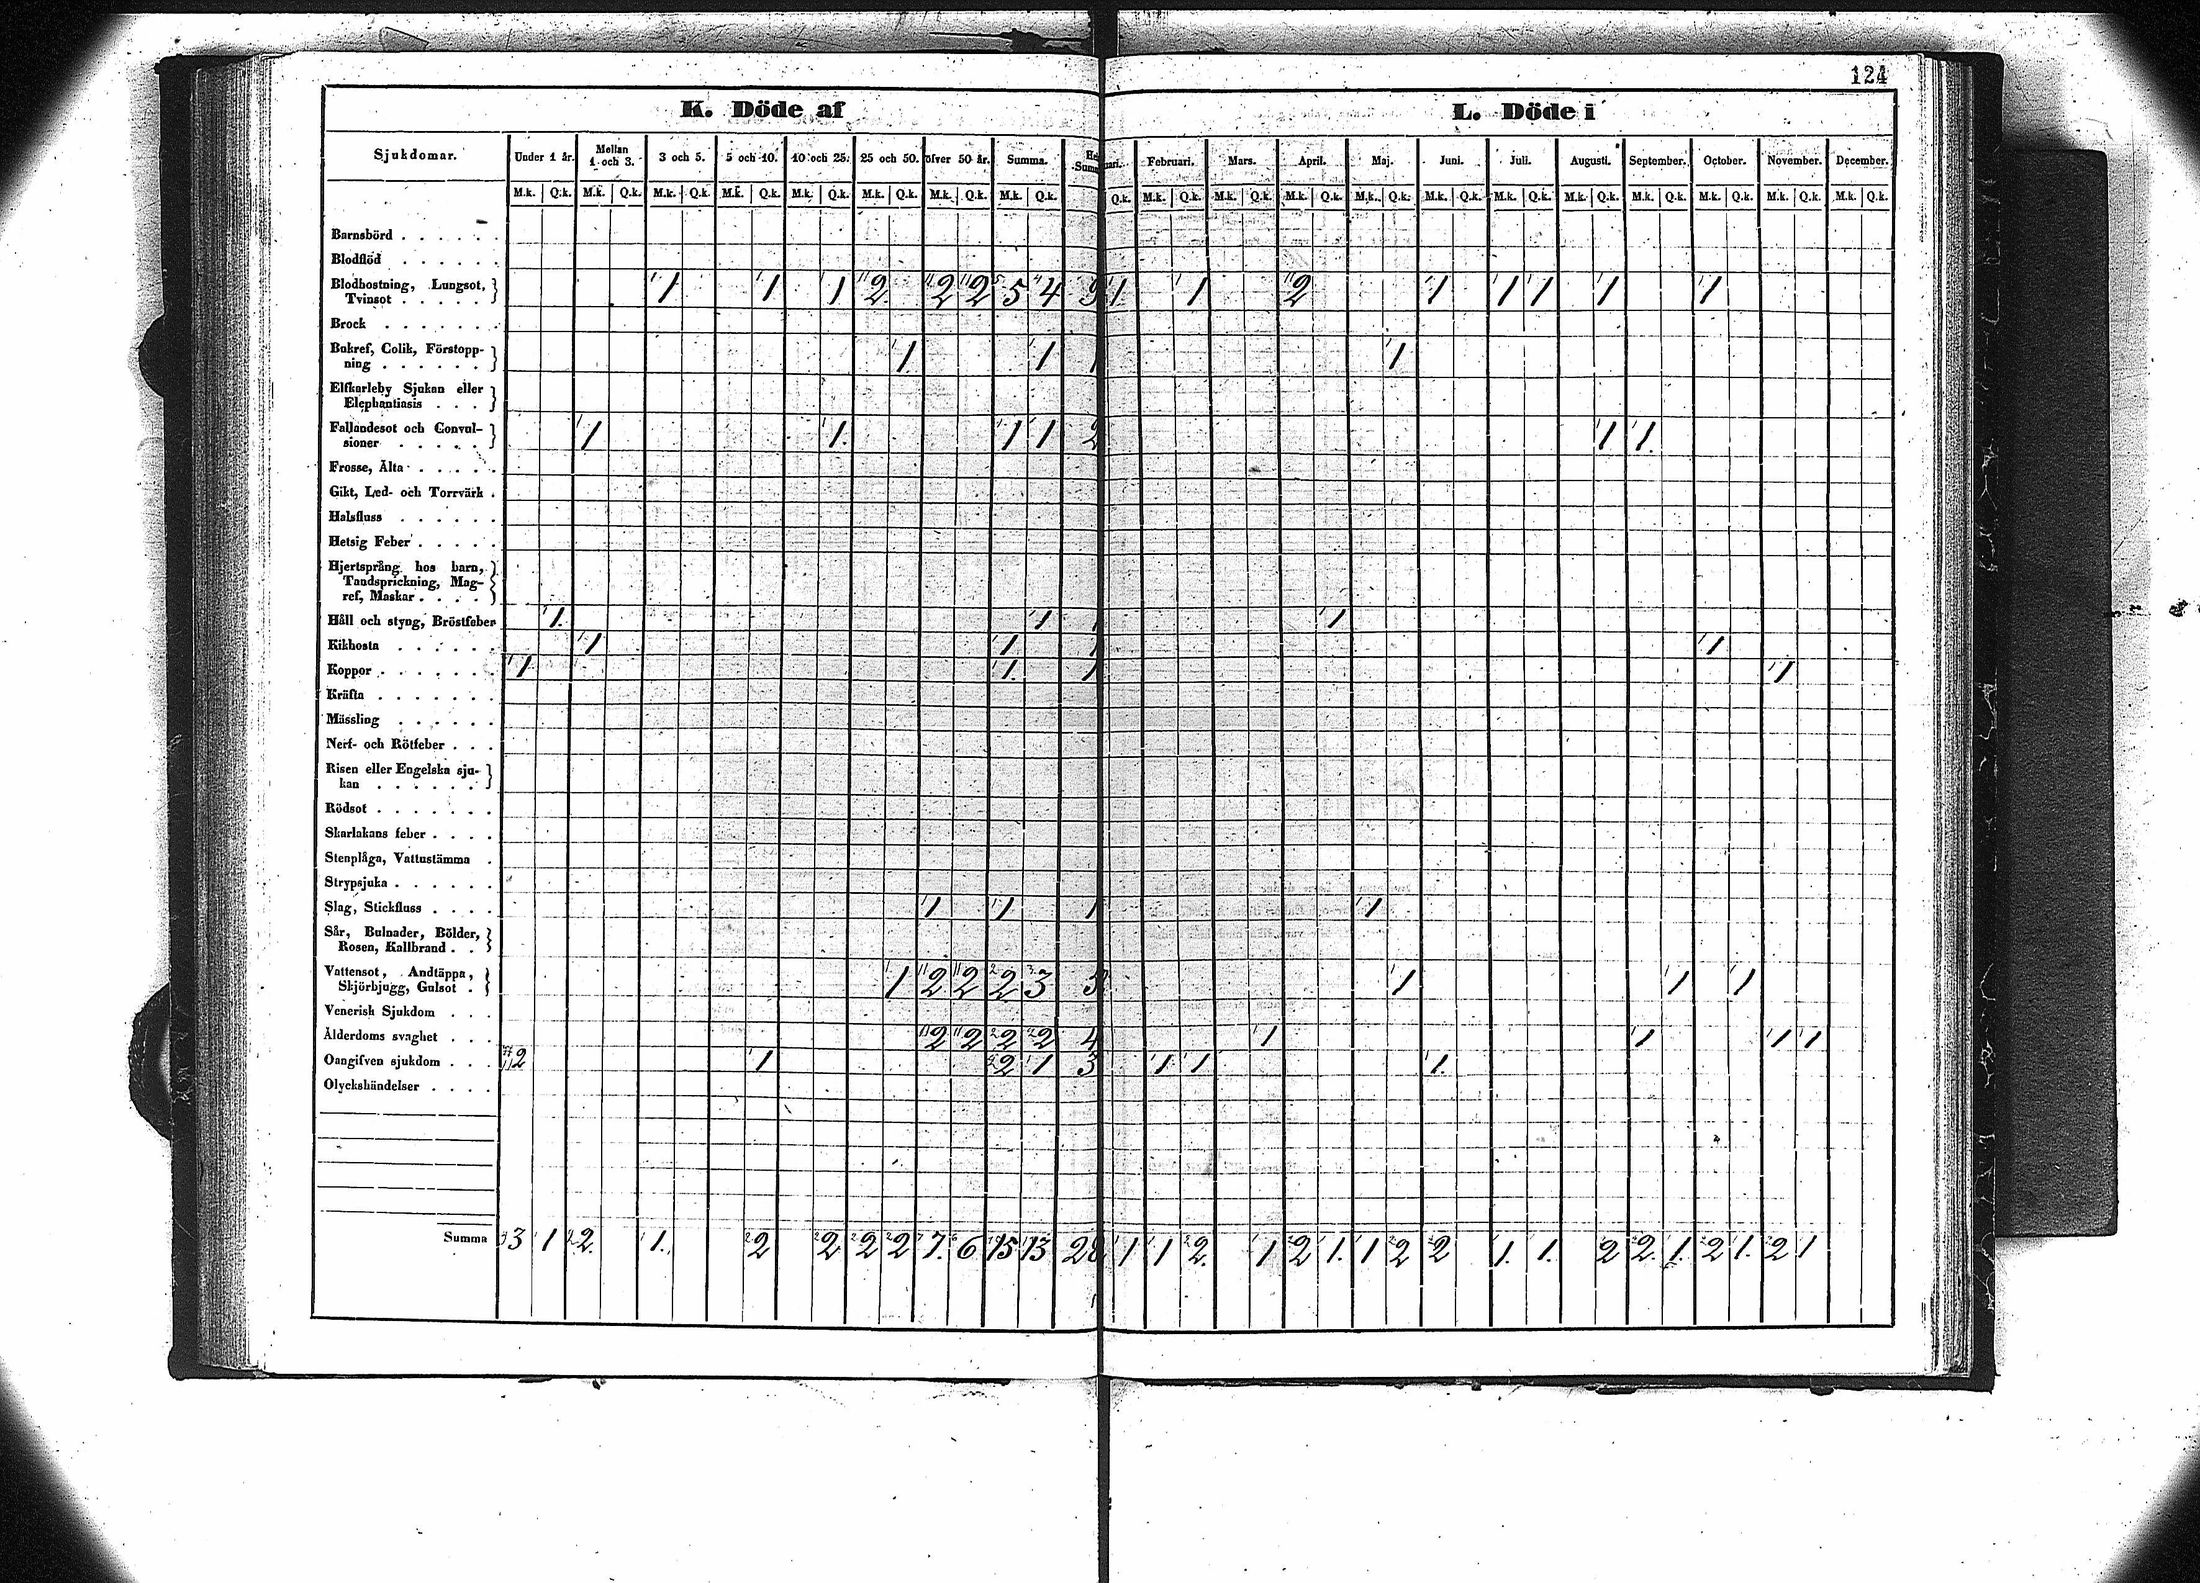 124
K. Döde af
L. Döde i
Sjukdomar. Under 1 år. Mellan 1 och 3. 3 och 5. 5 och 10. 10 och 25. 25 och 50. öfver 50 år. Summa. Februari. Mars. April. Maj. Juni. Juli. Augusti. September. October. November. December.
M.k. Q.k. M.k. Q.k. M.k. Q.k. M.k. Q.k. M.k. Q.k. M.k. Q.k. M.k. Q.k. M.k. Q.k. Q.k. M.k. Q.k. M.k. Q.k. M.k. Q.k. M.k. Q.k. M.k. Q.k. M.k. Q.k. M.k. Q.k. M.k. Q.k. M.k. Q.k. M.k. Q.k. M.k. Q.k.
Barnsbörd
Blodflöd
Blodhostning, Lungsot,
Tvinsot 1 1 1 2 2 2 5 4 9 1 1 2 1 1 1 1 1
Brock
Bukref, Colik, Förstopp-
ning 1 1 1 1
Elfkarleby Sjukan eller
Elephantiasis
Fallandesot och Convul-
sioner 1 1 1 1 2 1 1
Frosse, Älta
Gikt, Led- och Torrvärk
Halsfluss
Hetsig Feber
Hjertsprång hos barn,
Tandsprickning, Mag-
ref, Maskar
Håll och styng, Bröstfeber 1 1 1 1
Kikhosta 1 1 1 1
Koppor 1 1 1 1
Kräfta
Mässling
Nerf- och Rötfeber
Risen eller Engelska sju-
kan
Rödsot
Skarlakans feber
Stenplåga, Vattustämma
Strypsjuka
Slag, Stickfluss 1 1 1 1
Sår, Bulnader, Bölder,
Rosen, Kallbrand
Vattensot, Andtäppa,
Skjörbjugg, Gulsot 1 2 2 2 3 5 1 1 1
Venerisk Sjukdom
Ålderdoms svaghet 2 2 2 2 4 1 1 1 1
Oangifven sjukdom 2 1 2 1 3 1 1 1
Olyckshändelser
Summa 3 1 2 1 2 2 2 2 7 6 15 13 28 1 1 2 1 2 1 1 2 2 1 1 2 2 1 2 1 2 1